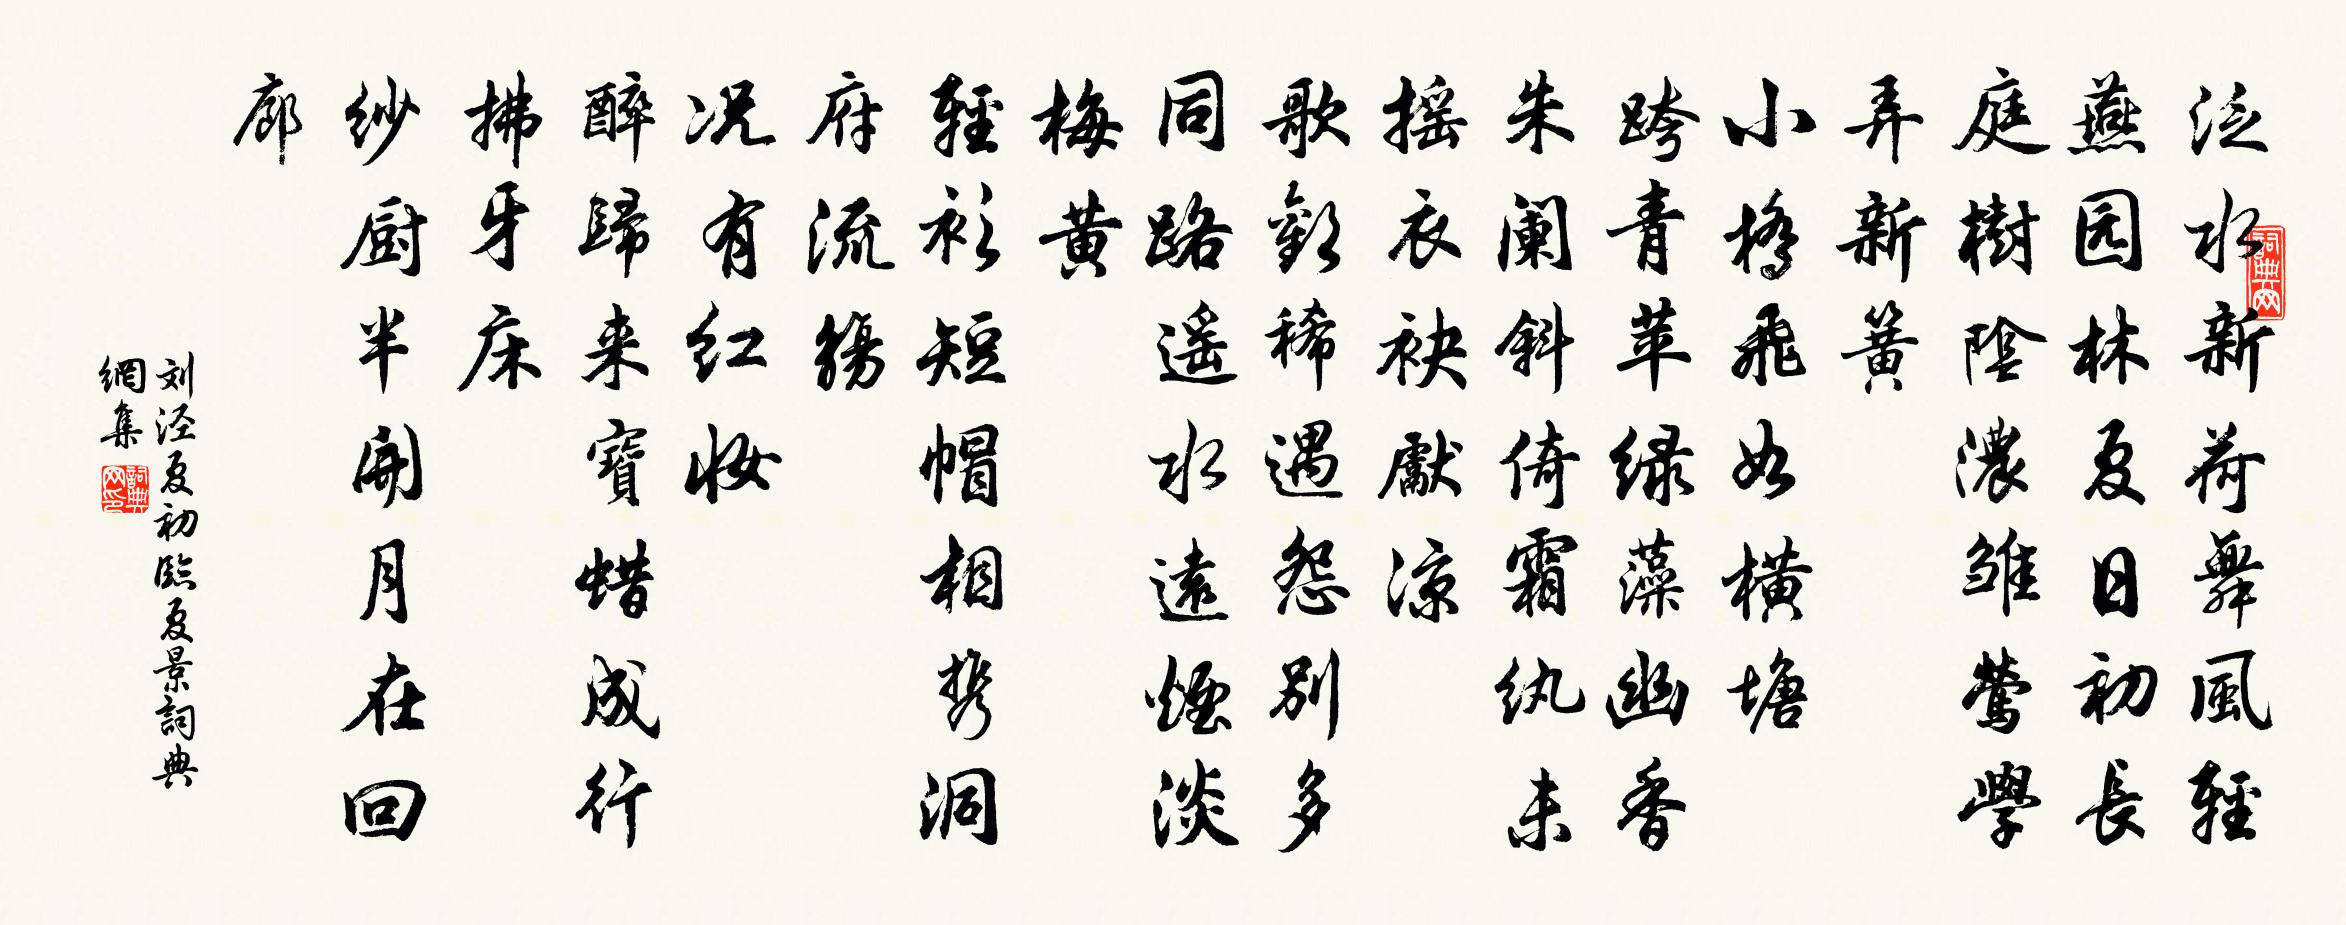 泛水新荷舞風輕
燕园林夏日初長
庭樹陰濃雏鶯學
弄新簧
小橋飛如横塘
跨青苹绿藻幽香
朱阑斜倚霜纨未
摇衣袂獻凉
歌歡稀遇怨别多
同路遥水遠煙淡
梅黄
輕衫短帽相携洞
府流觞
况有红妆
醉歸来寶蜡成行
拂牙床
纱厨半開月在回
廊
刘泾夏初臨夏景詞典
網集
詞典网
詞典网印